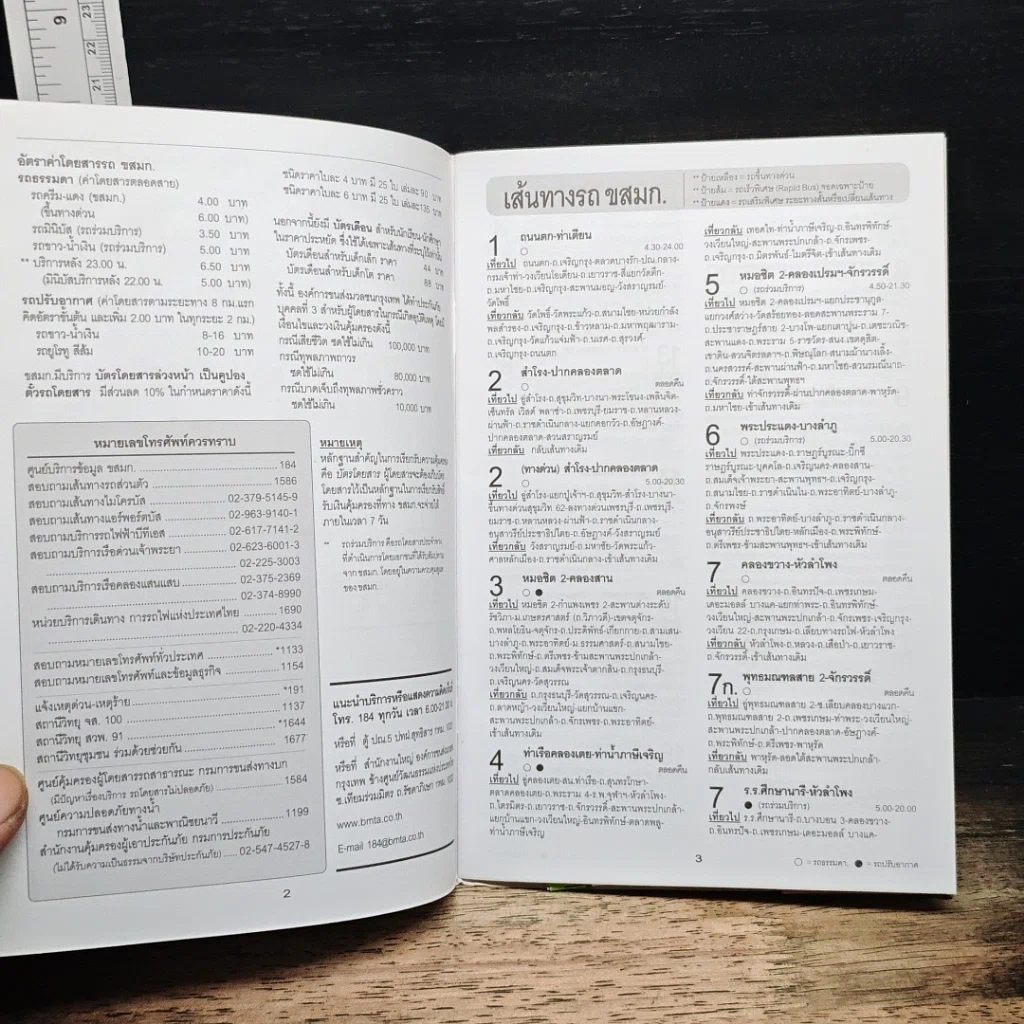 9
23
22
21
อัตราค่าโดยสารรถ ขสมก.
รถธรรมดา (ค่าโดยสารตลอดสาย)
รถครีม-แดง (ขสมก.) 4.00 บาท
(ขึ้นทางด่วน 6.00 บาท)
รถมินิบัส (รถร่วมบริการ) 3.50 บาท
รถขาว-น้ำเงิน (รถร่วมบริการ) 5.00 บาท
** บริการหลัง 23.00 น. 6.50 บาท
(มินิบัสบริการหลัง 22.00 น. 5.00 บาท)
รถปรับอากาศ (ค่าโดยสารตามระยะทาง 8 กม.แรก
คิดอัตราขั้นต้น และเพิ่ม 2.00 บาท ในทุกระยะ 2 กม.)
รถขาว-น้ำเงิน 8-16 บาท
รถยูโรทู สีส้ม 10-20 บาท
ขสมก.มีบริการ บัตรโดยสารล่วงหน้า เป็นคูปอง
ตั๋วรถโดยสาร มีส่วนลด 10% ในกำหนดราคาดังนี้
ชนิดราคาใบละ 4 บาท มี 25 ใบ เล่มละ 90 บาท
ชนิดราคาใบละ 6 บาท มี 25 ใบ เล่มละ 135 บาท
นอกจากนี้ยังมี บัตรเดือน สำหรับนักเรียน-นักศึกษา
ในราคาประหยัด ซึ่งใช้ได้เฉพาะเส้นทางที่ระบุไว้เท่านั้น
บัตรเดือนสำหรับเด็กเล็ก ราคา 44 บาท
บัตรเดือนสำหรับเด็กโต ราคา 88 บาท
ทั้งนี้ องค์การขนส่งมวลชนกรุงเทพ ได้ทำประกันภัย
บุคคลที่ 3 สำหรับผู้โดยสารในกรณีเกิดอุบัติเหตุ โดยมี
เงื่อนไขและวงเงินคุ้มครองดังนี้
กรณีเสียชีวิต ชดใช้ไม่เกิน 100,000 บาท
กรณีทุพพลภาพถาวร
ชดใช้ไม่เกิน 80,000 บาท
กรณีบาดเจ็บถึงทุพพลภาพชั่วคราว
ชดใช้ไม่เกิน 10,000 บาท
หมายเลขโทรศัพท์ควรทราบ
ศูนย์บริการข้อมูล ขสมก. 184
สอบถามเส้นทางรถส่วนตัว 1586
สอบถามเส้นทางไมโครบัส 02-379-5145-9
สอบถามเส้นทางแอร์พอร์ตบัส 02-963-9140-1
สอบถามบริการรถไฟฟ้าบีทีเอส 02-617-7141-2
สอบถามบริการเรือด่วนเจ้าพระยา 02-623-6001-3
02-225-3003
สอบถามบริการเรือคลองแสนแสบ 02-375-2369
02-374-8990
หน่วยบริการเดินทาง การรถไฟแห่งประเทศไทย 1690
02-220-4334
สอบถามหมายเลขโทรศัพท์ทั่วประเทศ *1133
สอบถามหมายเลขโทรศัพท์และข้อมูลธุรกิจ 1154
แจ้งเหตุด่วน-เหตุร้าย *191
สถานีวิทยุ จส. 100 1137
สถานีวิทยุ สวพ. 91 *1644
สถานีวิทยุชุมชน ร่วมด้วยช่วยกัน 1677
ศูนย์คุ้มครองผู้โดยสารรถสาธารณะ กรมการขนส่งทางบก
(มีปัญหาเรื่องบริการ รถโดยสารไม่ปลอดภัย) 1584
ศูนย์ความปลอดภัยทางน้ำ
กรมการขนส่งทางน้ำและพาณิชยนาวี 1199
สำนักงานคุ้มครองผู้เอาประกันภัย กรมการประกันภัย
(ไม่ได้รับความเป็นธรรมจากบริษัทประกันภัย) 02-547-4527-8
หมายเหตุ
หลักฐานสำคัญในการเรียกรับความคุ้มครอง
คือ บัตรโดยสาร ผู้โดยสารจะต้องเก็บบัตร
โดยสารไว้เป็นหลักฐานในการเรียกสิทธิ์
รับเงินคุ้มครองที่ทาง ขสมก.จะจ่ายให้
ภายในเวลา 7 วัน
** รถร่วมบริการ คือรถโดยสารประจำทาง
ที่ดำเนินการโดยเอกชนที่ได้รับสัมปทาน
จาก ขสมก. โดยอยู่ในความควบคุมดูแล
ของ ขสมก.
แนะนำบริการหรือแสดงความคิดเห็นได้
โทร. 184 ทุกวัน เวลา 6.00-21.00 น.
หรือที่ ตู้ ปณ.5 ปทฝ.สุทธิสาร กทม.
หรือที่ สำนักงานใหญ่ องค์การขนส่งมวลชน
กรุงเทพ ข้างศูนย์วัฒนธรรมแห่งประเทศไทย
ซ.เทียมร่วมมิตร ถ.รัชดาภิเษก กทม.
www.bmta.co.th
E-mail 184@bmta.co.th
2
เส้นทางรถ ขสมก.
** ป้ายเหลือง = รถขึ้นทางด่วน
** ป้ายส้ม = รถเร็วพิเศษ (Rapid Bus) จอดเฉพาะป้าย
** ป้ายแดง = รถเสริมพิเศษ ระยะทางสั้นหรือเปลี่ยนเส้นทาง
1 ถนนตก-ท่าเตียน
○ 4.30-24.00
เที่ยวไป ถนนตก-ถ.เจริญกรุง-ตลาดบางรัก-ปณ.กลาง-
กรมเจ้าท่า-วงเวียนโอเดียน-ถ.เยาวราช-สี่แยกวัดตึก-
ถ.มหาไชย-เจริญกรุง-สะพานมอญ-วังสราญรมย์-
วัดโพธิ์
เที่ยวกลับ วัดโพธิ์-วัดพระแก้ว-ถ.สนามไชย-หน่วยกำลัง
พลสำรอง-ถ.เจริญกรุง-ข้าวหลาม-ถ.มหาพฤฒาราม-
ถ.เจริญกรุง-วัดแก้วแจ่มฟ้า-ถ.นเรศ-ถ.สุรวงศ์-
ถ.เจริญกรุง-ถนนตก
2 สำโรง-ปากคลองตลาด
○ ตลอดคืน
เที่ยวไป อู่สำโรง-ถ.สุขุมวิท-บางนา-พระโขนง-เพลินจิต-
เซ็นทรัล เวิลด์ พลาซ่า-ถ.เพชรบุรี-ยมราช-ถ.หลานหลวง-
ผ่านฟ้า-ถ.ราชดำเนินกลาง-แยกคอกวัว-ถ.อัษฎางค์-
ปากคลองตลาด-สวนสราญรมย์
เที่ยวกลับ กลับเส้นทางเดิม
2 (ทางด่วน) สำโรง-ปากคลองตลาด
○ 5.00-20.30
เที่ยวไป อู่สำโรง-แยกปู่เจ้าฯ-ถ.สุขุมวิท-สำโรง-บางนา-
ขึ้นทางด่วนสุขุมวิท 62-ลงทางด่วนเพชรบุรี-ถ.เพชรบุรี-
ยมราช-ถ.หลานหลวง-ผ่านฟ้า-ถ.ราชดำเนินกลาง-
อนุสาวรีย์ประชาธิปไตย-ถ.อัษฎางค์-วังสราญรมย์
เที่ยวกลับ วังสราญรมย์-ถ.มหาชัย-วัดพระแก้ว-
ศาลหลักเมือง-ถ.ราชดำเนินกลาง-เข้าเส้นทางเดิม
3 หมอชิต 2-คลองสาน
○ ● ตลอดคืน
เที่ยวไป หมอชิต 2-กำแพงเพชร 2-สะพานต่างระดับ
รัชวิภา-ม.เกษตรศาสตร์ (ถ.วิภาวดี)-เขตจตุจักร-
ถ.พหลโยธิน-จตุจักร-ถ.ประดิพัทธ์-เกียกกาย-ถ.สามเสน-
บางลำภู-ถ.พระอาทิตย์-ม.ธรรมศาสตร์-ถ.สนามไชย-
ถ.พระพิทักษ์-ถ.ตรีเพชร-ข้ามสะพานพระปกเกล้า-
วงเวียนใหญ่-ถ.สมเด็จพระเจ้าตากสิน-ถ.กรุงธนบุรี-
ถ.เจริญนคร-วัดสุวรรณ
เที่ยวกลับ ถ.กรุงธนบุรี-วัดสุวรรณ-ถ.เจริญนคร-
ถ.ลาดหญ้า-วงเวียนใหญ่-แยกบ้านแขก-
สะพานพระปกเกล้า-ถ.จักรเพชร-ถ.พระอาทิตย์-
เข้าเส้นทางเดิม
4 ท่าเรือคลองเตย-ท่าน้ำภาษีเจริญ
○ ● ตลอดคืน
เที่ยวไป อู่คลองเตย-สน.ท่าเรือ-ถ.สุนทรโกษา-
ตลาดคลองเตย-ถ.พระราม 4-ร.พ.จุฬาฯ-หัวลำโพง-
ถ.ไตรมิตร-ถ.เยาวราช-ถ.จักรวรรดิ์-สะพานพระปกเกล้า-
แยกบ้านแขก-วงเวียนใหญ่-ถ.อินทรพิทักษ์-ตลาดพลู-
ท่าน้ำภาษีเจริญ
เที่ยวกลับ เทอดไท-ท่าน้ำภาษีเจริญ-ถ.อินทรพิทักษ์-
วงเวียนใหญ่-สะพานพระปกเกล้า-ถ.จักรเพชร-
ถ.เจริญกรุง-ถ.มิตรพันธ์-ไมตรีจิต-เข้าเส้นทางเดิม
5 หมอชิต 2-คลองเปรมฯ-จักรวรรดิ์
○ (รถร่วมบริการ) 4.50-21.30
เที่ยวไป หมอชิต 2-คลองเปรมฯ-แยกประชานุกูล-
แยกวงศ์สว่าง-วัดสร้อยทอง-ลอดสะพานพระราม 7-
ถ.ประชาราษฎร์สาย 2-บางโพ-แยกเตาปูน-ถ.เตชะวณิช-
สะพานแดง-ถ.พระราม 5-ราชวัตร-สนง.เขตดุสิต-
เขาดิน-สวนจิตรลดาฯ-ถ.พิษณุโลก-สนามม้านางเลิ้ง-
ถ.นครสวรรค์-สะพานผ่านฟ้า-ถ.มหาไชย-สวนรมณีนาถ-
ถ.จักรวรรดิ์-ใต้สะพานพุทธฯ
เที่ยวกลับ ท่าจักรวรรดิ์-ผ่านปากคลองตลาด-พาหุรัด-
ถ.มหาไชย-เข้าเส้นทางเดิม
6 พระประแดง-บางลำภู
○ (รถร่วมบริการ) 5.00-20.30
เที่ยวไป พระประแดง-ถ.ราษฎร์บูรณะ-บิ๊กซี
ราษฎร์บูรณะ-บุคคโล-ถ.เจริญนคร-คลองสาน-
ถ.สมเด็จเจ้าพระยา-สะพานพุทธฯ-ถ.เจริญกรุง-
ถ.สนามไชย-ถ.ราชดำเนินใน-ถ.พระอาทิตย์-บางลำภู-
ถ.จักรพงษ์
เที่ยวกลับ ถ.พระอาทิตย์-บางลำภู-ถ.ราชดำเนินกลาง-
อนุสาวรีย์ประชาธิปไตย-หลักเมือง-ถ.พระพิทักษ์-
ถ.ตรีเพชร-ข้ามสะพานพุทธฯ-เข้าเส้นทางเดิม
7 คลองขวาง-หัวลำโพง
○ ตลอดคืน
เที่ยวไป คลองขวาง-ถ.อินทรปัจ-ถ.เพชรเกษม-
เดอะมอลล์ บางแค-แยกท่าพระ-ถ.อินทรพิทักษ์-
วงเวียนใหญ่-สะพานพระปกเกล้า-ถ.จักรเพชร-เจริญกรุง-
วงเวียน 22-ถ.กรุงเกษม-ถ.เลียบทางรถไฟ-หัวลำโพง
เที่ยวกลับ หัวลำโพง-ถ.หลวง-ถ.เสือป่า-ถ.เยาวราช-
ถ.จักรวรรดิ์-เข้าเส้นทางเดิม
7ก. พุทธมณฑลสาย 2-จักรวรรดิ์
○ ตลอดคืน
เที่ยวไป อู่พุทธมณฑลสาย 2-ซ.เลียบคลองบางแวก-
ถ.พุทธมณฑลสาย 2-ถ.เพชรเกษม-ท่าพระ-วงเวียนใหญ่-
สะพานพระปกเกล้า-ปากคลองตลาด-อัษฎางค์-
ถ.พระพิทักษ์-ถ.ตรีเพชร-พาหุรัด
เที่ยวกลับ พาหุรัด-ลอดใต้สะพานพระปกเกล้า-
กลับเส้นทางเดิม
7 ร.ร.ศึกษานารี-หัวลำโพง
● (รถร่วมบริการ) 5.00-20.00
เที่ยวไป ร.ร.ศึกษานารี-ถ.บางบอน 3-คลองขวาง-
ถ.อินทรปัจ-ถ.เพชรเกษม-เดอะมอลล์ บางแค-
3
○ = รถธรรมดา, ● = รถปรับอากาศ